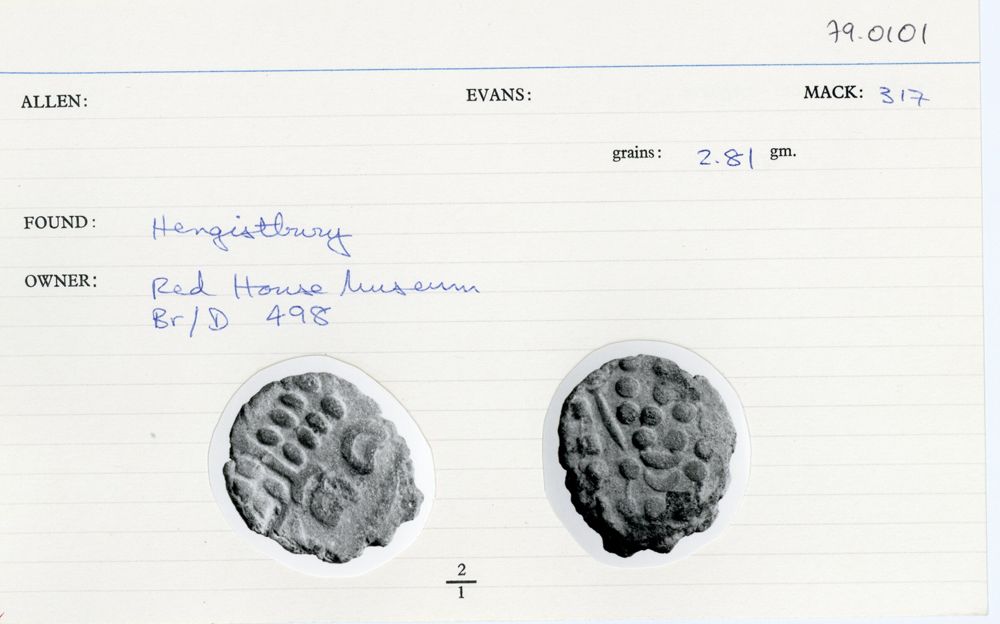 79.0101
ALLEN: EVANS: MACK: 317
grains: 2.81 gm.
FOUND: Hengistbury
OWNER: Red House Museum
Br/D 498
2
1